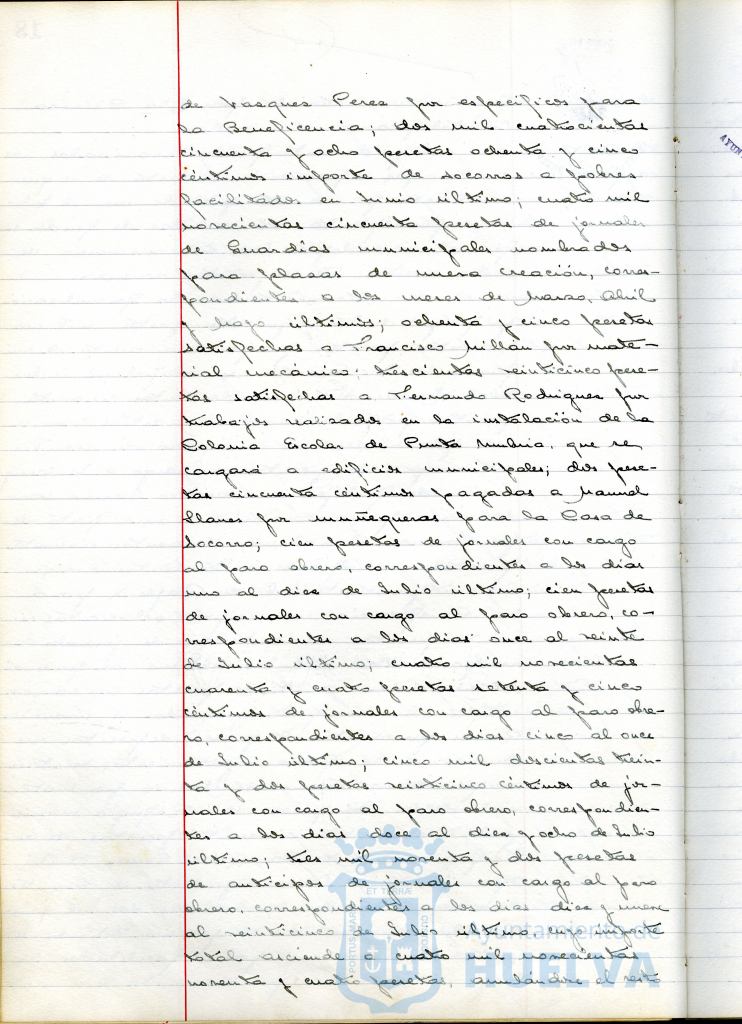 de Vasquez Perez por específicos para
la Beneficencia; dos mil cuatrocientas
cincuenta y ocho pesetas ochenta y cinco
céntimos importe de socorros a pobres
facilitados en Junio último; cuatro mil
novecientas cincuenta pesetas de jornales
de Guardias municipales nombrados
para plazas de nueva creación, corres-
pondientes a los meses de Marzo, Abril
y Mayo últimos; ochenta y cinco pesetas
satisfechas a Francisco Millán por mate-
rial mecánico; trescientas veinticinco pese-
tas satisfechas a Fernando Rodriguez por
trabajos realizados en la instalación de la
Colonia Escolar de Punta Umbria, que se
cargará a edificios municipales; dos pese-
tas cincuenta céntimos pagadas a Manuel
Llanes por muñequeras para la Casa de
Socorro; cien pesetas de jornales con cargo
al paro obrero, correspondientes a los dias
uno al diez de Julio último; cien pesetas
de jornales con cargo al paro obrero, co-
rrespondientes a los dias once al veinte
de Julio último; cuatro mil novecientas
cuarenta y cuatro pesetas setenta y cinco
céntimos de jornales con cargo al paro obre-
ro, correspondientes a los dias cinco al once
de Julio último; cinco mil doscientas trein-
ta y dos pesetas veinticinco céntimos de jor-
nales con cargo al paro obrero, correspondien-
tes a los dias doce al diez y ocho de Julio
último; tres mil noventa y dos pesetas
de anticipos de jornales con cargo al paro
obrero, correspondientes a los dias diez y nueve
al veinticinco de Julio último, cuyo importe
total asciende a cuatro mil novecientas
noventa y cuatro pesetas, anulándose el resto
AYUN
PORTUS MARIS
ET TERRÆ
CUSTODIO
Ayuntamiento de
HUELVA
18